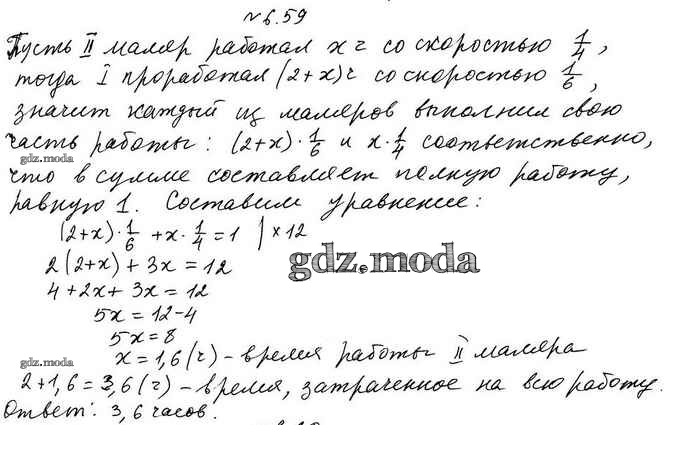 №6.59
Пусть II маляр работал x ч со скоростью 1/4,
тогда I проработал (2+x)ч со скоростью 1/6,
значит каждый из маляров выполнил свою
часть работы: (2+x)·1/6 и x·1/4 соответственно,
gdz.moda
что в сумме составляет полную работу,
равную 1. Составим уравнение:
(2+x)·1/6 + x·1/4 = 1 | ×12
2(2+x) + 3x = 12
gdz.moda
4+2x+3x = 12
5x = 12-4
5x = 8
x = 1,6 (ч) - время работы II маляра
gdz.moda
2+1,6 = 3,6 (ч) - время, затраченное на всю работу.
Ответ: 3,6 часов.